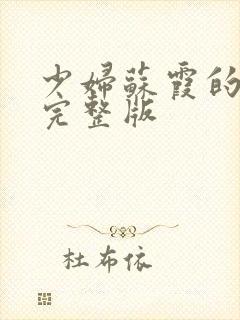 少婦蘇霞的
完整版
杜布依